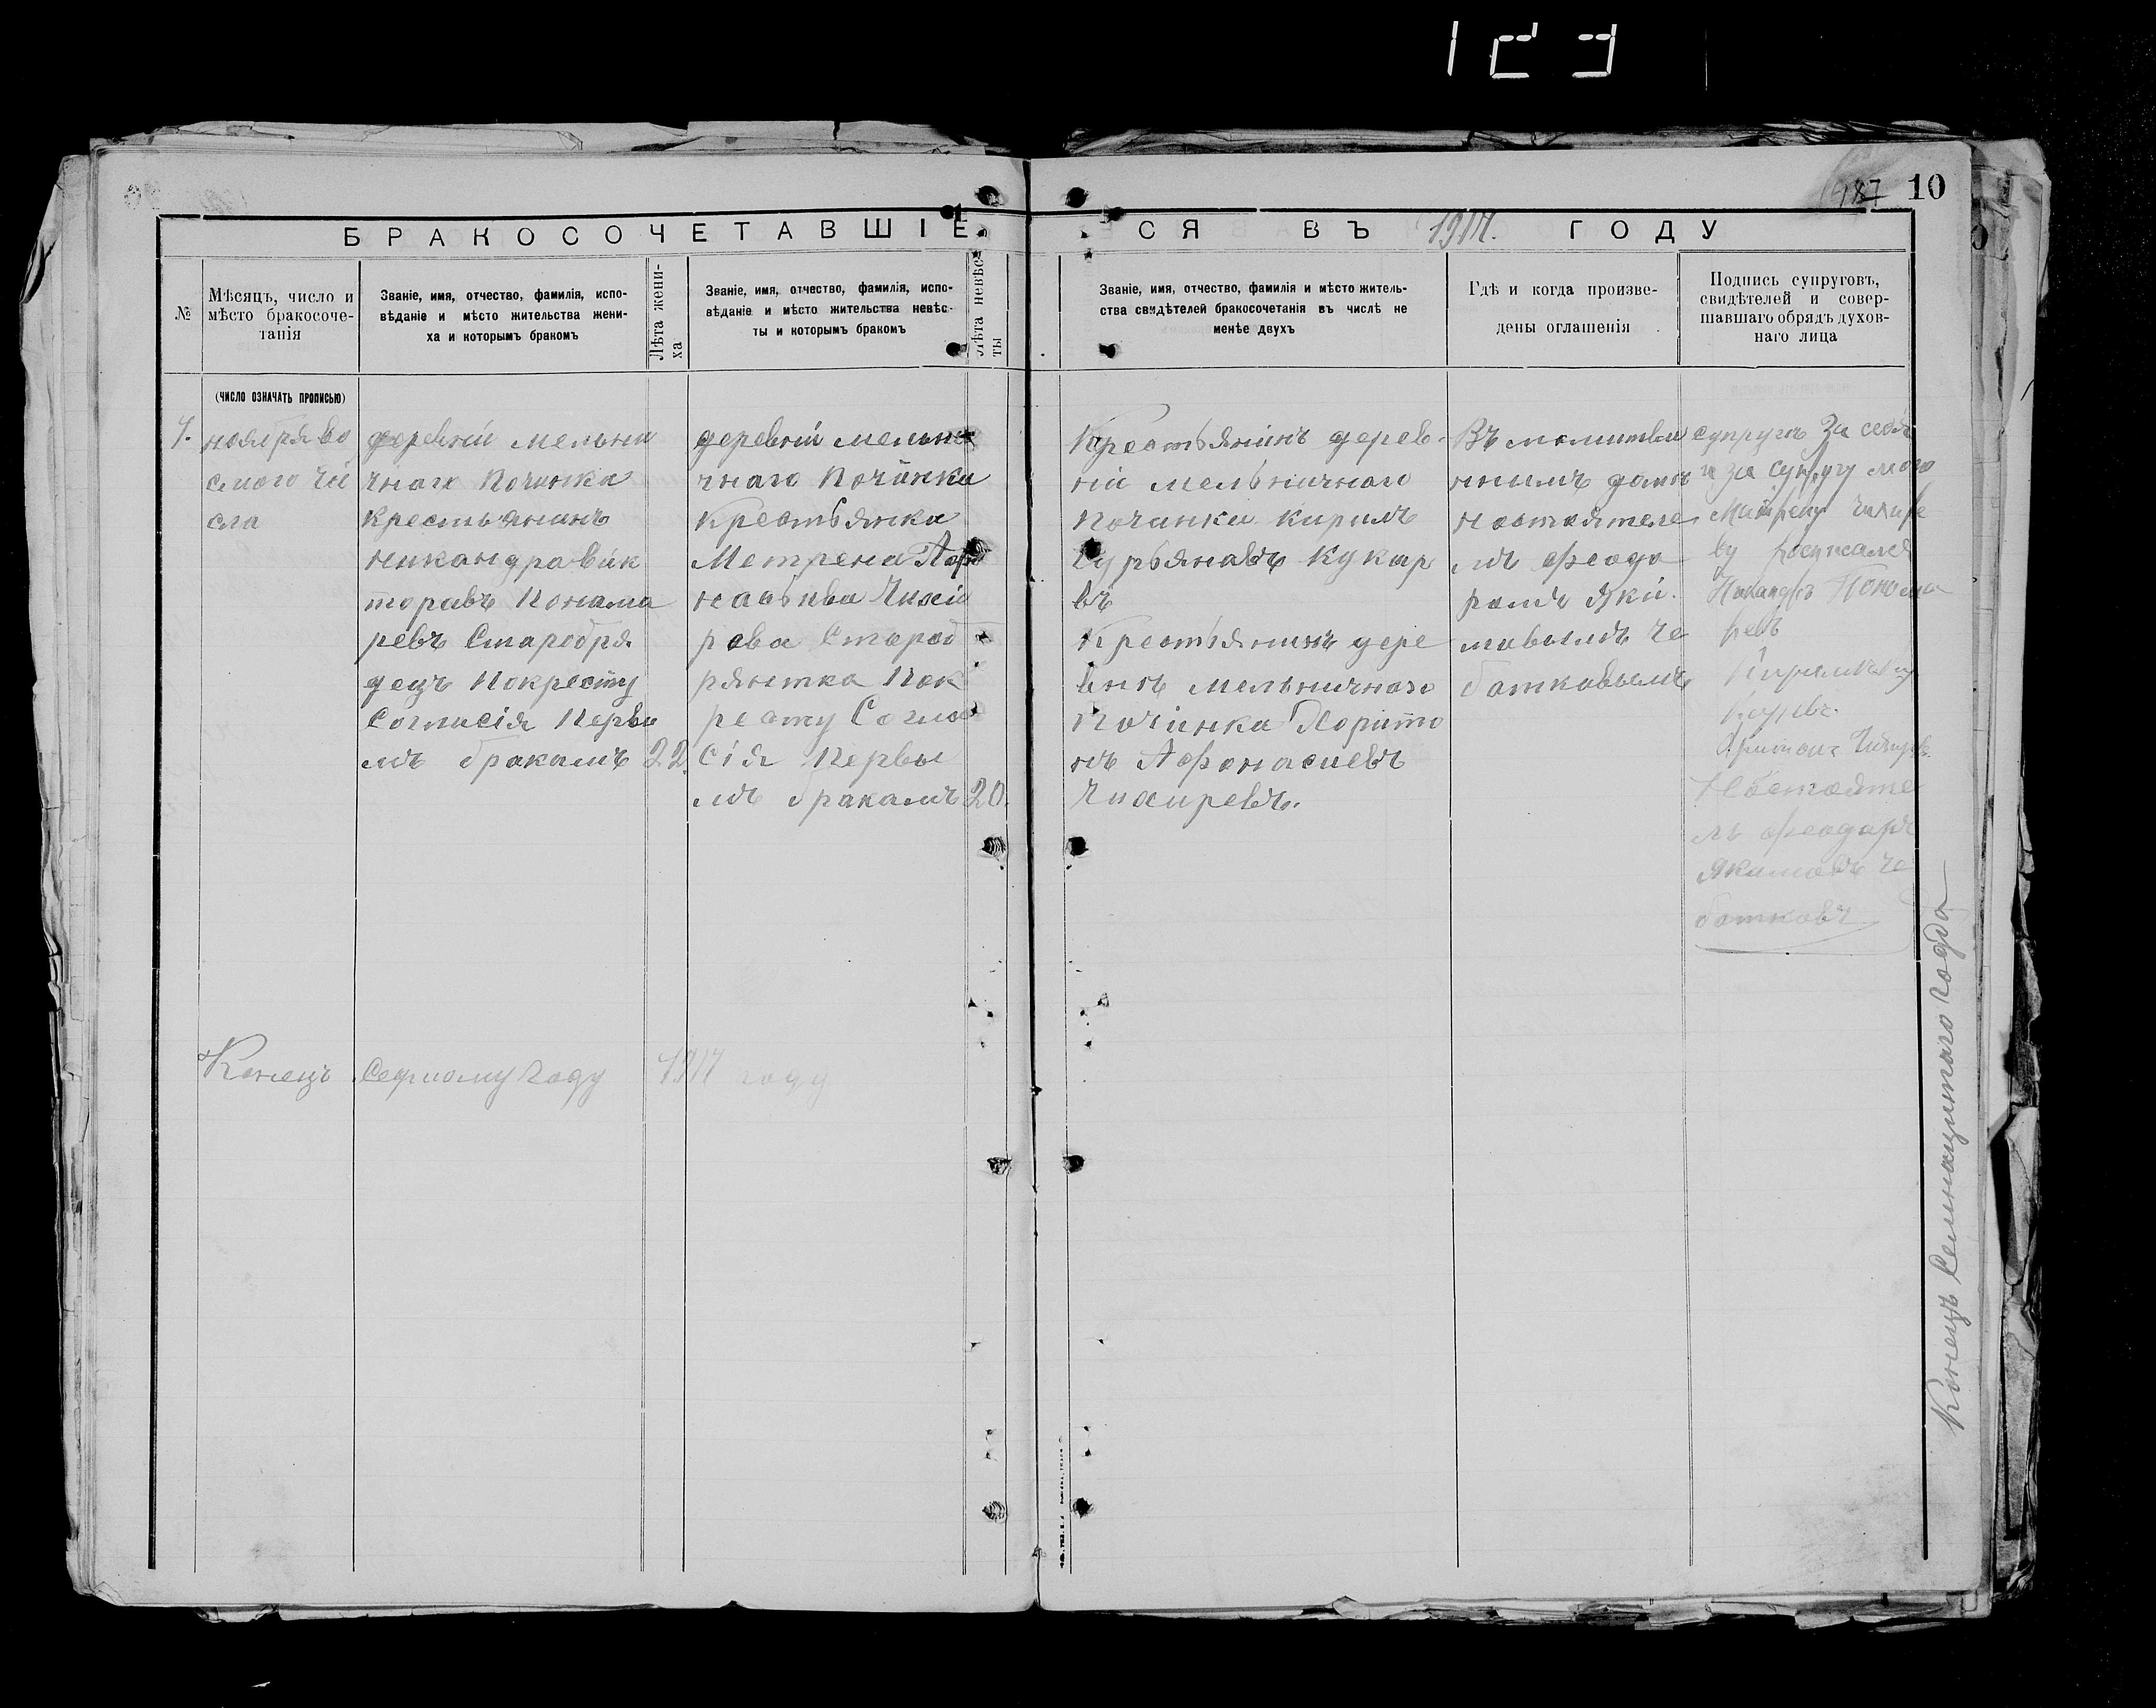 123
487 10
БРАКОСОЧЕТАВШІЕСЯ ВЪ 1917. ГОДУ
№
Мѣсяцъ, число и
мѣсто бракосоче-
танія
Званіе, имя, отчество, фамилія, испо-
вѣданіе и мѣсто жительства жени-
ха и которымъ бракомъ
Лѣта жени-
ха
Званіе, имя, отчество, фамилія, испо-
вѣданіе и мѣсто жительства невѣс-
ты и которымъ бракомъ
Лѣта невѣс-
ты
Званіе, имя, отчество, фамилія и мѣсто житель-
ства свидѣтелей бракосочетанія въ числѣ не
менѣе двухъ
Гдѣ и когда произве-
дены оглашенія
Подпись супруговъ,
свидѣтелей и совер-
шавшаго обрядъ духов-
наго лица
(число означать прописью)
ноября во
сьмого чи
сла
деревни мельни
чнаго Починка
крестьянинъ
никандравик
торавъ Понама
ревъ Старобря
децъ Покресту
Согласія Первы
мъ бракамъ 22.
деревни мельни
чнаго Починка
Крестьянка
Метрена Афо
насьива Чихи
рева Староб
рянтка Пок
ресту Согла
сія Первы
мъ бракамъ 20.
Крестьянинъ дерев-
ни мельничнаго
Починка Кирилъ
Гурьянавъ Кукар
въ
Крестьянинъ дере
внѣ мельничнаго
Починка Хорито
нъ Афонасиевъ
Чихиревъ.
Въ молитве
ннымъ доми
ностоятеле
мъ феодо
ромъ Яки
мавымъ Че
боткавымъ
супругъ За себя
и за супругу мою
Матрену Чихире
ву росписался
Никандръ Понома
ревъ
Харитонъ Чихиревъ
Ностояте
ль феодаръ
Якимовъ Че
ботковъ
Конецъ Седмому Году 1917 году
Конецъ Семнацитаго года